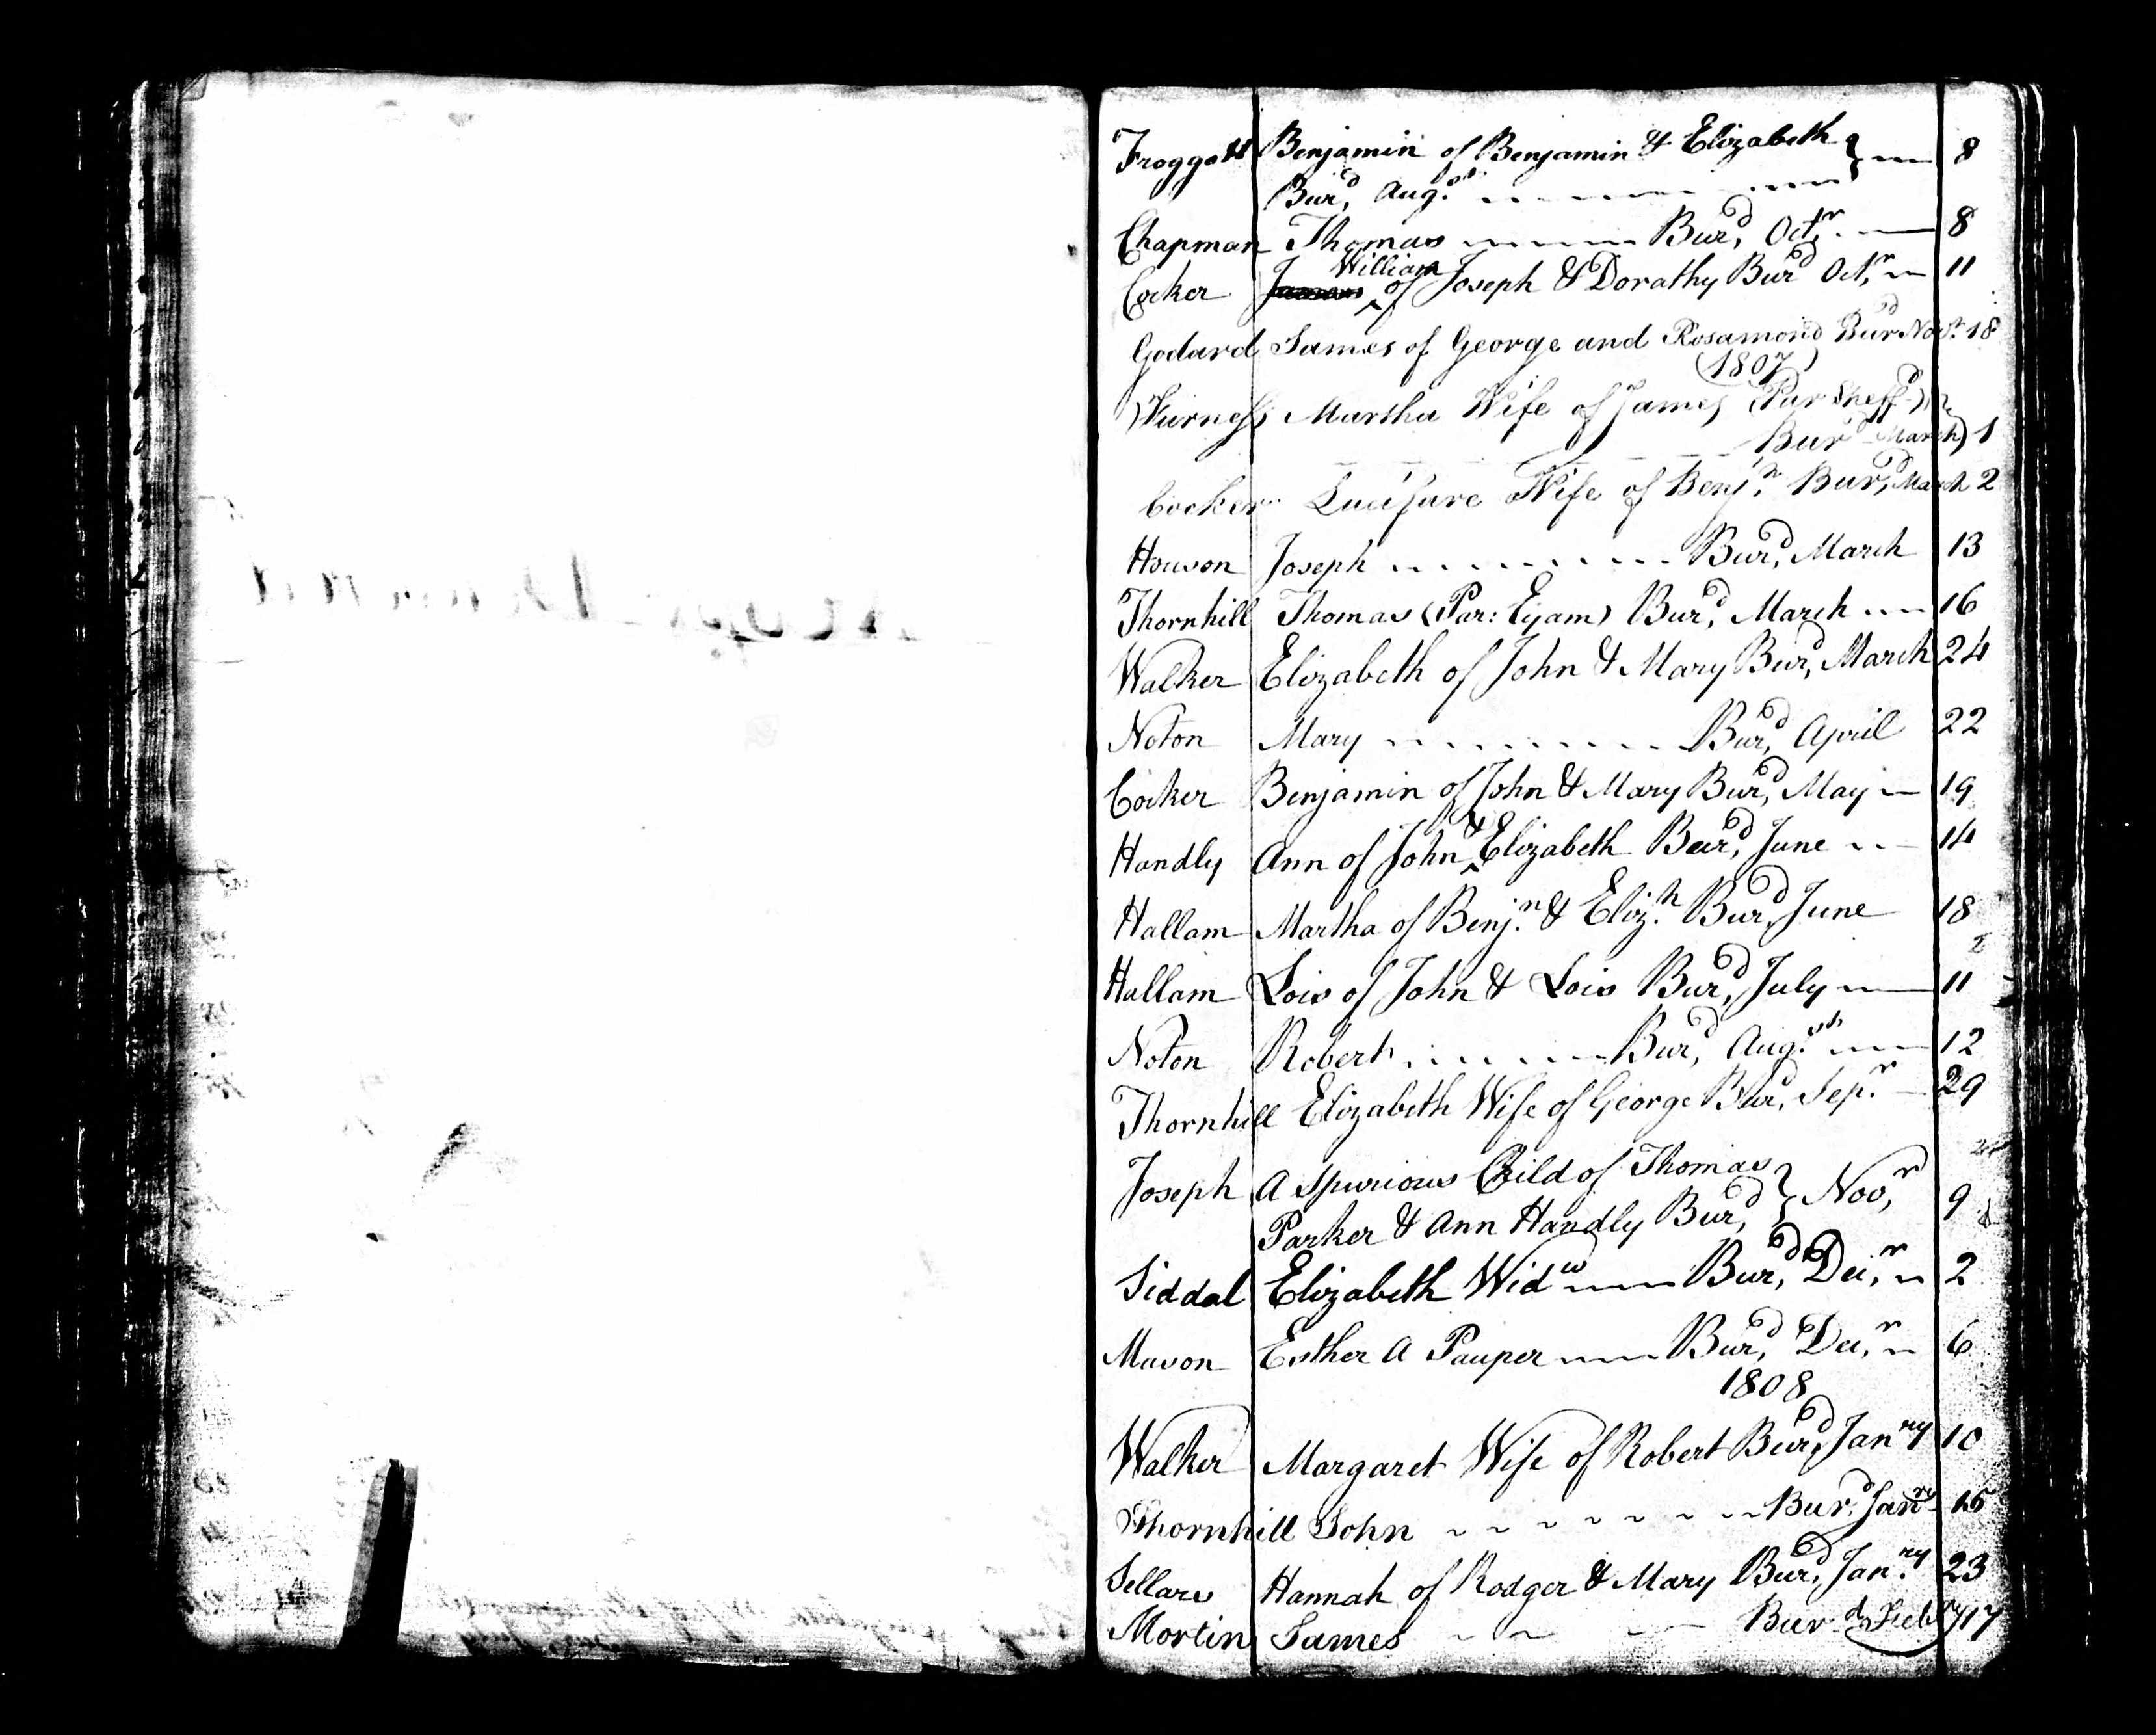 Froggatt Benjamin of Benjamin & Elizabeth } 8
Bur,d Aug.st
Chapman Thomas Bur,d Oct,r 8
Cocker William of Joseph & Dorathy Bur,d Oct,r 11
Godard James of George and Rosamond Bur'd Nov.r 18
(1807)
Furness Martha Wife of James (Par Sheff'd)
Bur'd March) 1
Cocker Wife of Benj,n Bur,d March 2
Howson Joseph Bur,d March 13
Thornhill Thomas (Par: Eyam) Bur,d March 16
Walker Elizabeth of John & Mary Bur,d March 24
Noton Mary Bur,d April 22
Cocker Benjamin of John & Mary Bur,d May 19
Handly Ann of John & Elizabeth Bur,d June 14
Hallam Martha of Benj.n & Eliz.h Bur,d June 18
Hallam Lois of John & Lois Bur,d July 11
Noton Robert Bur,d Aug.st 12
Thornhill Elizabeth Wife of George Bur,d Sep.r 29
Joseph A Spurious Child of Thomas } Nov,r 9
Parker & Ann Handly Bur,d
Siddal Elizabeth Wid.w Bur,d Dec,r 2
Mason Esther A Pauper Bur,d Dec,r 6
1808
Walker Margaret Wife of Robert Bur,d Jan.ry 10
Thornhill John Bur.d Jan.ry 15
Sellars Hannah of Rodger & Mary Bur,d Jan.ry 23
Mortin James Bur.d Feb.ry 17